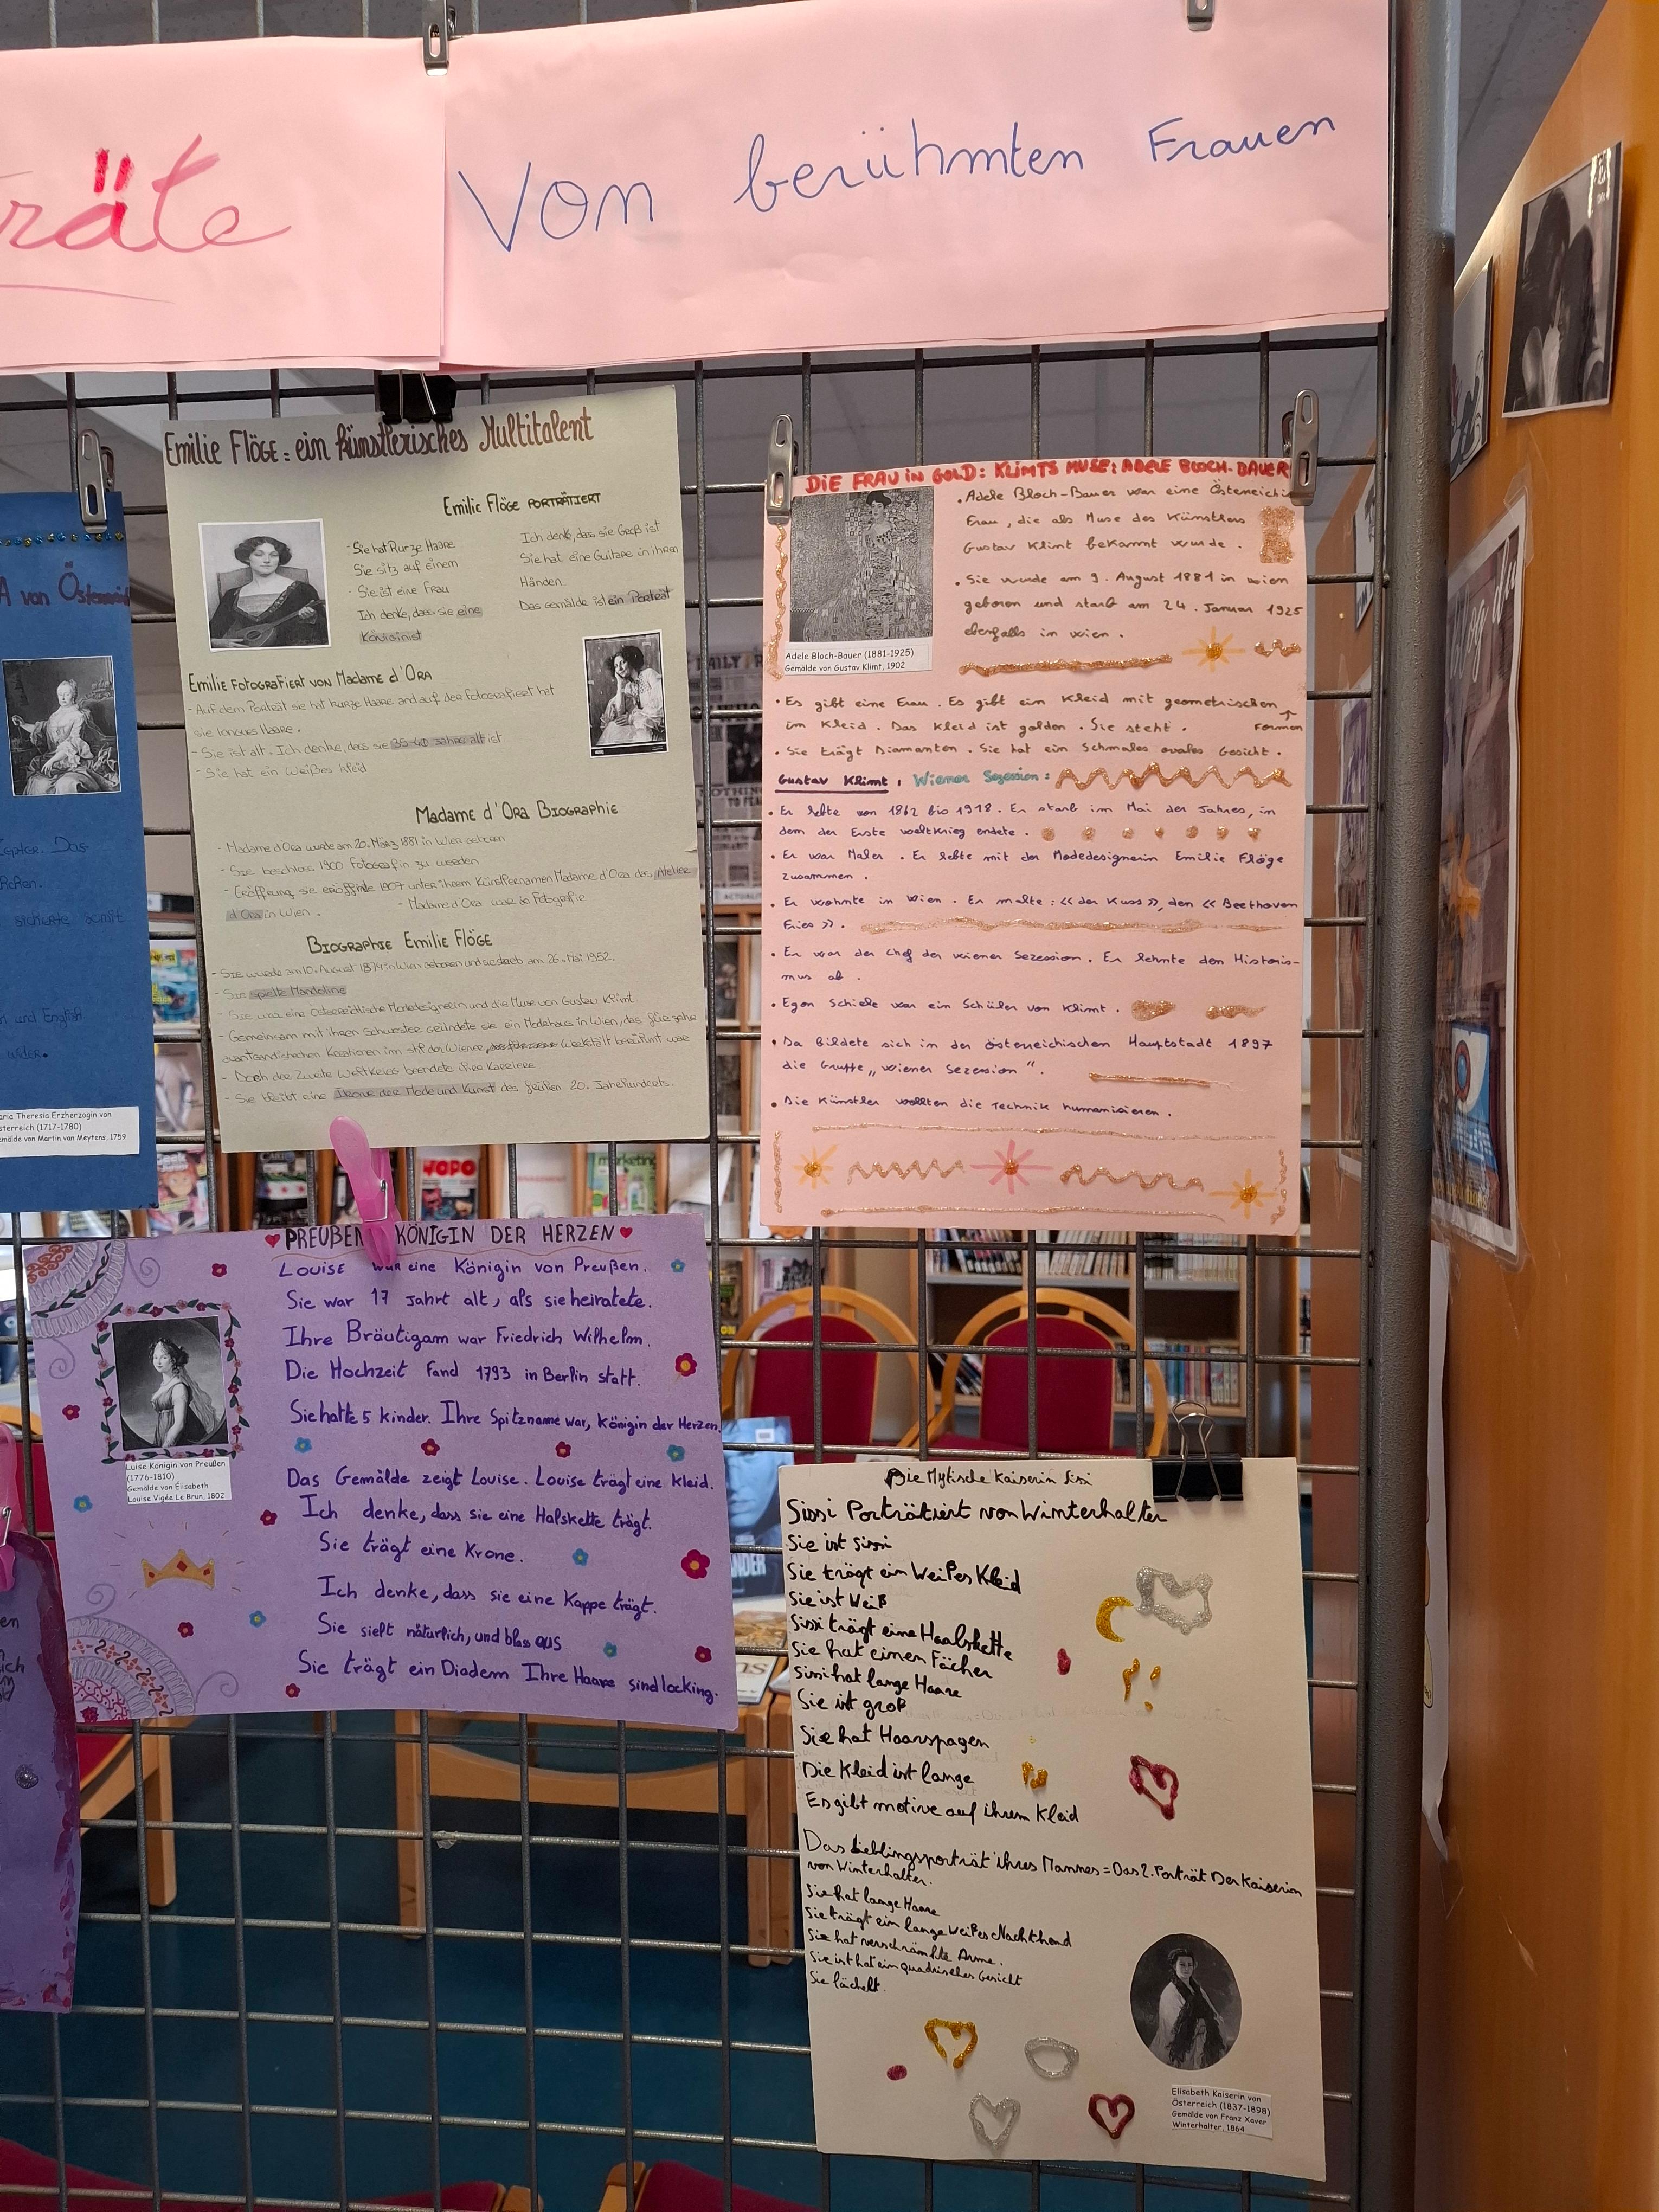 räte
Von berühmten Frauen
Emilie Flöge: ein künstlerisches Multitalent
Emilie Flöge porträtiert
- Sie hat Kurze Haare
Sie sitz auf einem
- Sie ist eine Frau
Ich denke, dass sie eine
Königin ist
Ich denk, das sie Groß ist
Sie hat eine Guitare in ihren
Händen.
Das Gemälde ist ein Porträt
Emilie fotografiert von Madame d'Ora
- Auf dem Porträt sie hat kurze Haare and auf der Fotografiert hat
sie longues Haare.
- Sie ist alt. Ich denke, das sie 35-40 Jahre alt ist
- Sie hat ein Weißes kleid
Madame d'Ora Biographie
- Madame d'Ora wurde am 20. März 1881 in Wien geboren
- Sie beschloss 1900 Fotografin zu werden
- Eröffnung sie eröffnte 1907 unter ihrem Künstlernamen Madame d'Ora das Atelier
d'Ora in Wien.
- Madame d'Ora war Fotografie
Biographie Emilie Flöge
- Sie wurde am 10. August 1874 in Wien geboren und sie starb am 26. Mai 1952.
- Sie spielte Mandoline
- Sie war eine Österreichische Modedesignerin und die Muse von Gustav Klimt
- Gemeinsam mit ihren Schwester gründete sie ein Modehaus in Wien, das für
Kreationen im stil der Wiener Werkstätt berühmt war
- Doch der Zweite Weltkrieg beendete ihre Karriere
- Sie bleibt eine Ikone der Mode und Kunst des frühen 20. Jahrhunderts.
DIE FRAU IN GOLD: KLIMTS MUSE: ADELE BLOCH-BAUER
Adele Bloch-Bauer (1881-1925)
Gemälde von Gustav Klimt, 1902
• Adele Bloch-Bauer war eine Östereichi
Frau, die als Muse des Künstlers
Gustav Klimt bekannt wurde.
• Sie wurde am 9. August 1881 in Wien
geboren und starb am 24. Januar 1925
ebenfalls in Wien.
• Es gibt eine Frau. Es gibt ein Kleid mit geometrischen
im Kleid. Das Kleid ist golden. Sie steht. Formen
• Sie trägt Diamanten. Sie hat ein Schmales ovales Gesicht.
Gustav Klimt, Wiener Sezession:
• Er lebte von 1862 bis 1918. Er starb im Mai der Jahres, in
dem der Erste Weltkrieg endete.
• Er war Maler. Er lebte mit der Modedesignerin Emilie Flöge
zusammen.
• Er wohnte in Wien. Er malte: << der Kuss >>, den << Beethoven
Fries >>.
• Er war der Chef der Wiener Sezession. Er lehnte den Historis-
mus ab.
• Egon Schiele war ein Schüler von Klimt.
• Da bildete sich in der österreichischen Hauptstadt 1897
die Gruppe „Wiener Sezession".
• Die Künstler wollten die Technik humanisieren.
A von Österreich
Zepter. Das
sicherte somit
n und English
wider.
aria Theresia Erzherzogin von
sterreich (1717-1780)
emälde von Martin van Meytens, 1759
PREUßEN KÖNIGIN DER HERZEN
Louise war eine Königin von Preußen.
Sie war 17 Jahrt alt, als sie heiratete.
Ihre Bräutigam war Friedrich Wilhelm.
Die Hochzeit Fand 1793 in Berlin statt.
Sie hatte 5 kinder. Ihre Spitzname war, Königin der Herzen.
Luise Königin von Preußen
(1776-1810)
Gemälde von Élisabeth
Louise Vigée Le Brun, 1802
Das Gemälde zeigt Louise. Louise trägt eine kleid.
Ich denke, dass sie eine Halskette trägt.
Sie trägt eine Krone.
Ich denke, dass sie eine Kappe trägt.
Sie sieht natürlich, und blass aus
Sie trägt ein Diadem Ihre Haare sind locking.
Die Mytische Kaiserin Sissi
Sissi Porträtiert von Winterhalter
Sie ist Sissi
Sie trägt ein Weißes Kleid
Sie ist Weiß
Sissi trägt eine Haalskette
Sie hat einen Fächer
Sissi hat lange Haare
Sie ist groß
Sie hat Haarspagen
Die Kleid ist lange
Es gibt motive auf ihrem Kleid
Das Lieblingsporträt ihres Mannes = Das 2. Porträt Der Kaiserin
von Winterhalter.
Sie hat lange Haare
Sie trägt ein lange weißes Nachthend
Sie hat verschränkte Arme.
Sie ist hat ein quadrisches Gesicht
Sie lächelt.
Elisabeth Kaiserin von
Österreich (1837-1898)
Gemälde von Franz Xaver
Winterhalter, 1864
TOPO
marketing